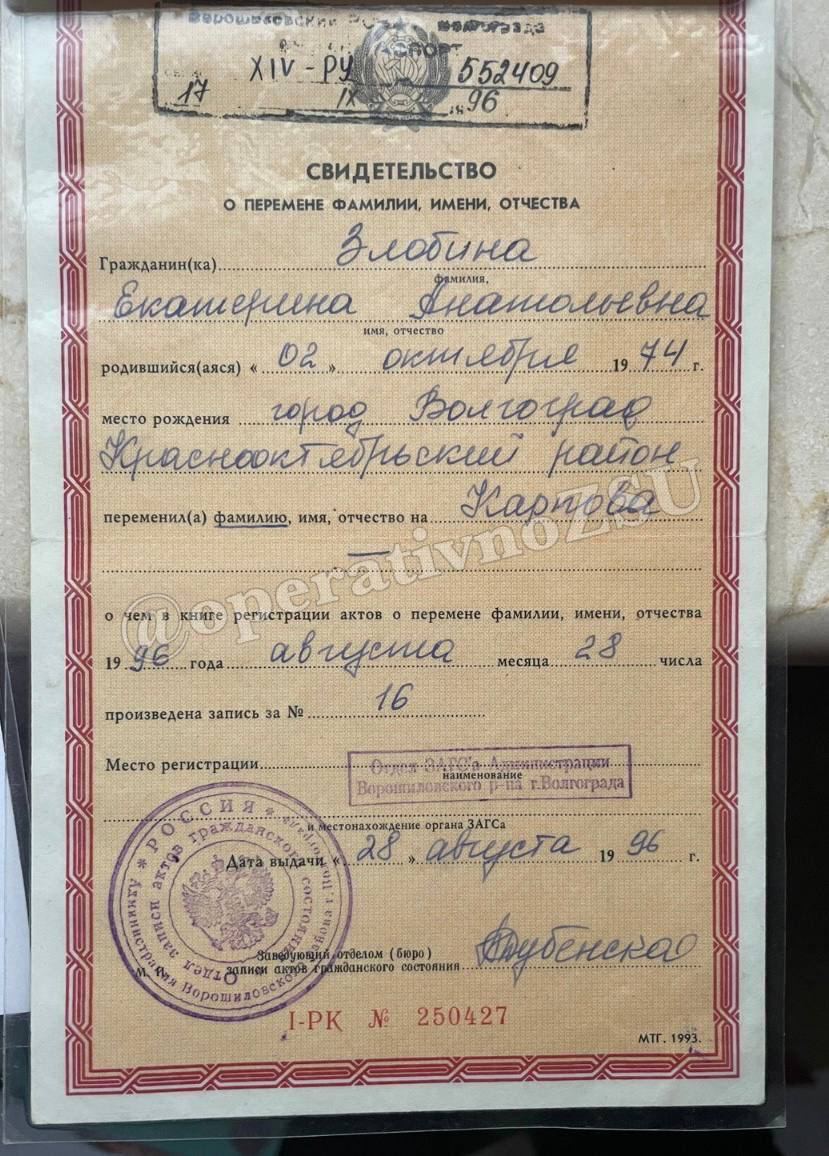 Ворошиловский Волгограда
ПАСПОРТ
XIV-РУ 552409
17 IX 1996
СВИДЕТЕЛЬСТВО
О ПЕРЕМЕНЕ ФАМИЛИИ, ИМЕНИ, ОТЧЕСТВА
Гражданин(ка) Злобина
фамилия,
Екатерина Анатольевна
имя, отчество
родившийся(аяся) « 02 » октября 1974 г.
место рождения город Волгоград
Краснооктябрьский район
переменил(а) фамилию, имя, отчество на Карпова
—
@operativnoZSU
о чем в книге регистрации актов о перемене фамилии, имени, отчества
1996 года августа месяца 28 числа
произведена запись за № 16
Место регистрации Отдел ЗАГС'а Администрации
наименование
Ворошиловского р-на г.Волгограда
и местонахождение органа ЗАГСа
Дата выдачи « 28 » августа 1996 г.
* РОССИЯ *
Отдел записи актов гражданского состояния
Ворошиловского
Заведующий отделом (бюро)
М. П. записи актов гражданского состояния
I-РК № 250427
МТГ. 1993.